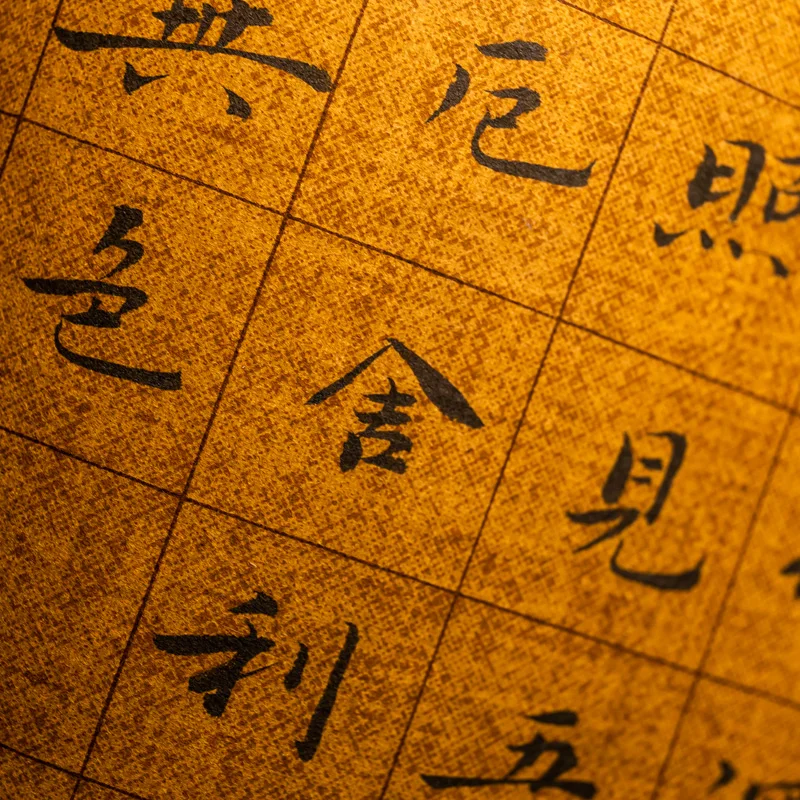 照見五
厄舍利
無色